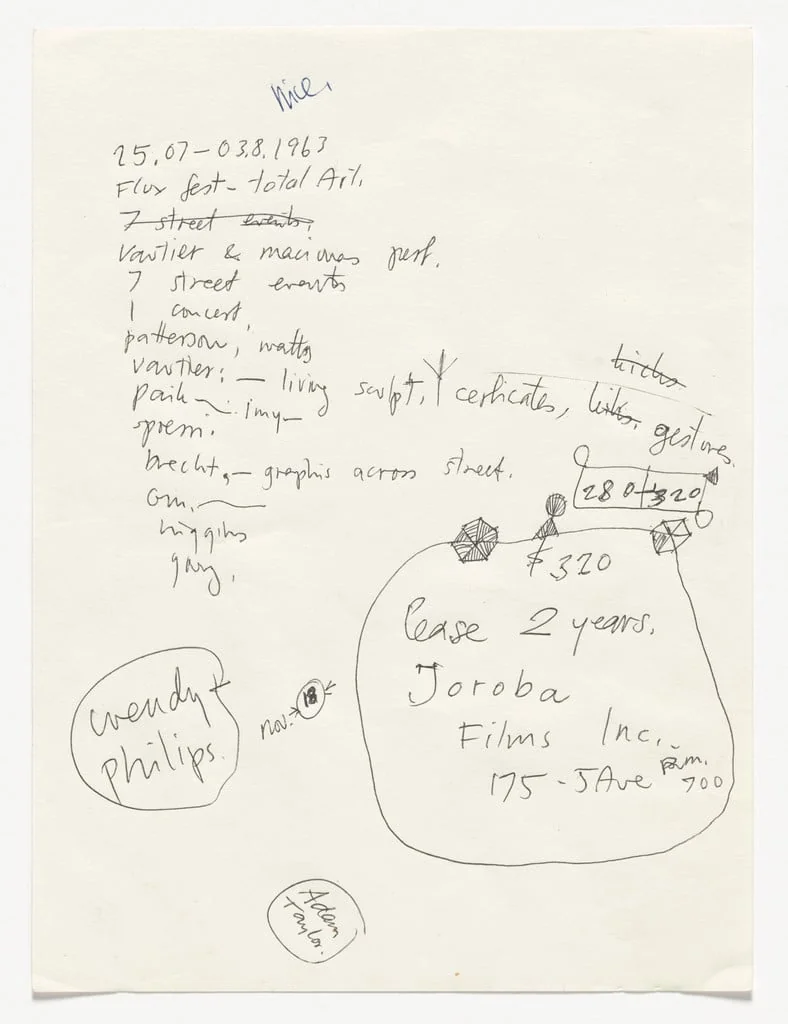 Nice,
25.07 – 03.8.1963
Flux fest – total Art.
7 street events.
Vautier & maciunas perf.
7 street events
1 concert,
patterson, watts
Vautier: – living sculpt, certificates, gestures.
paik
brecht, – graphis across street.
higgins
280 – 320
$320
lease 2 years.
Joroba
Films Inc.
175 – 5 Ave rm. 700
wendy +
philips.
nov. 18
Adam
Taylor.